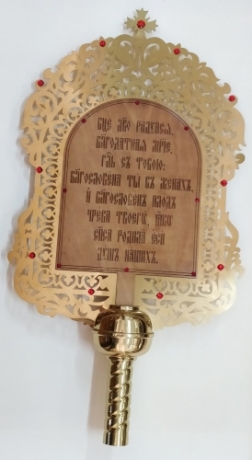 Бц҃е дв҃о радꙋйсѧ,
бл҃годатнаѧ мр҃іе,
гд҃ь съ тобою:
бл҃гословена ты въ женахъ,
и҆ бл҃гословенъ плодъ
чрева твоегѡ, ꙗ҆кѡ
сп҃са родила є҆си
дꙋшъ нашихъ.